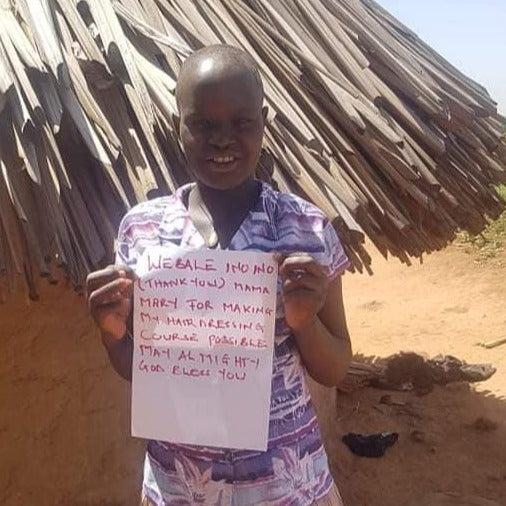 WEBALE INO NO
(THANK YOU) MAMA
MARY FOR MAKING
MY HAIR DRESSING
COURSE POSSIBLE
MAY ALMIGHTY
GOD BLESS YOU